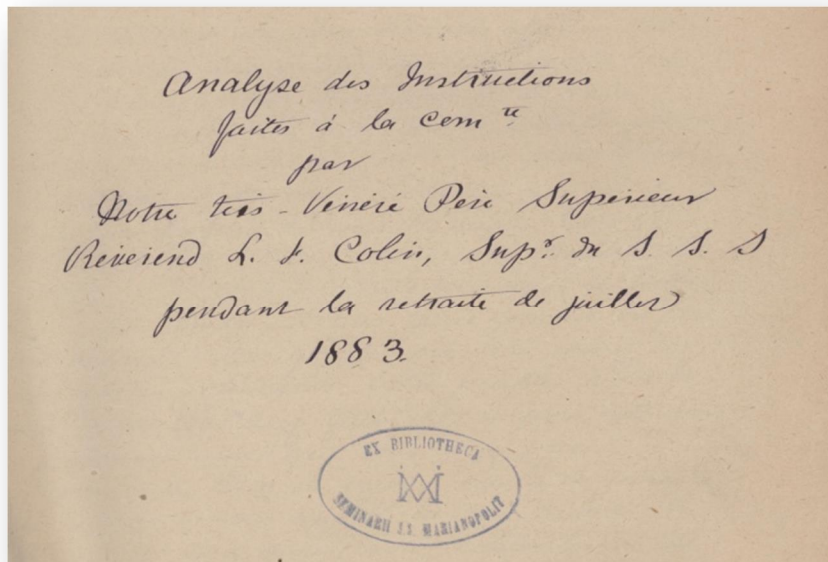 Analyse des Instructions
faites à la com té
par
Notre très-Vénéré Père Supérieur
Révérend L. F. Colin, Sup.r du S. S. S
pendant la retraite de juillet
1883.
EX BIBLIOTHECA
SEMINARII S.S. MARIANOPOLIT